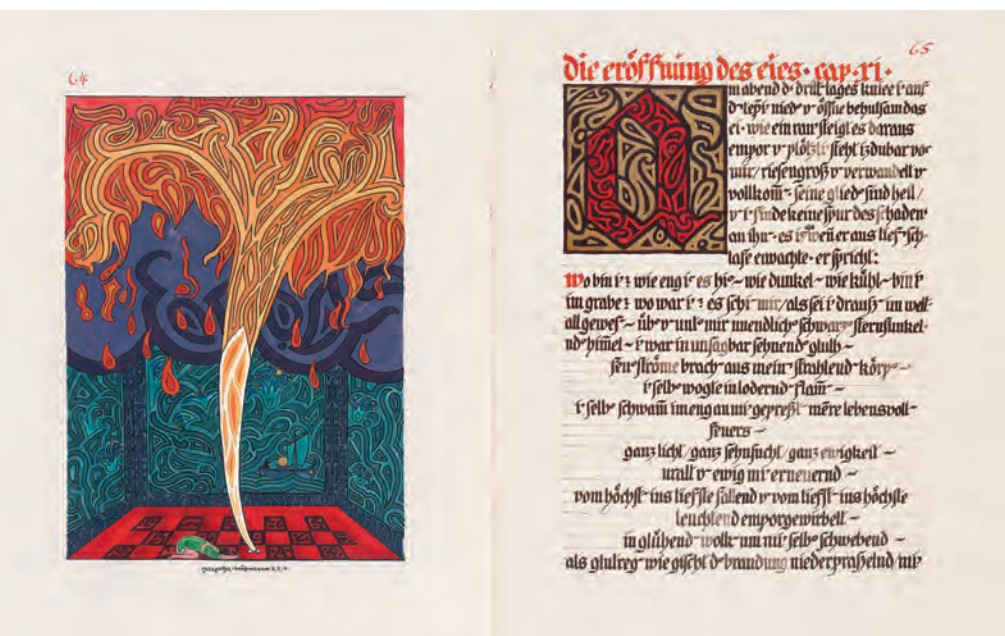 64
çatapatha-brâhmanam 2,2,4.
65
die eröffnung des eies. cap. xi.
Am abend d' dritt' tages kniee i' auf
d' tepp' nied' v' öffne behutsam das
ei. wie ein rau' steigt es daraus
empor v' plötzli' steht izdubar vor
mir/ riesengroß v' verwandelt v'
vollkom̄'. seine glied' sind heil/
v' i' finde keine spur des schadens
an ihm. es i' wie wen̄ er aus tief' sch-
lafe erwachte. er spricht:
Wo bin i'? wie eng i' es hi' ~ wie dunkel ~ wie kühl ~ bin i'
im grabe? wo war i'? es schi' mir/ als sei i' drauß' im welt-
all gewes' ~ üb' v' unt' mir unendlich' schwarz' sternfunkel-
nd' him̄el ~ i' war in unsagbar sehnend' gluth ~
feu' ströme brach' aus mein' strahlend' körp' ~
i' selb' wogte in lodernd' flam̄' ~
i' selb' schwam̄ im eng an mi' gepreßt' meere lebensvoll'
feuers ~
ganz licht/ ganz sehnsucht/ ganz ewigkeit ~
uralt v' ewig mi' erneuernd ~
vom höchst' ins tiefste fallend v' vom tiefst' ins höchste
leuchtend emporgewirbelt ~
in glühend' wolk' um mi' selb' schwebend ~
als glutreg' wie gischt d' brandung niederpraßelnd/ mi'